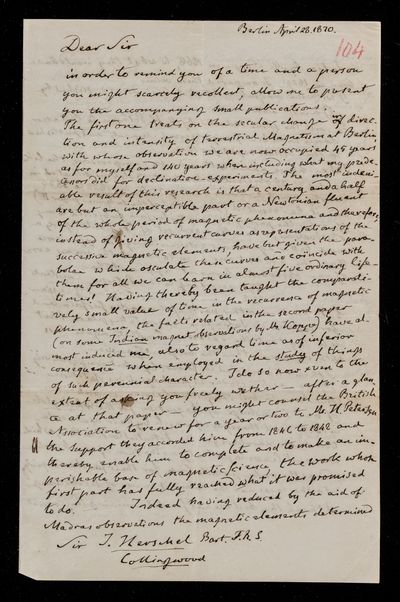 Berlin April 28. 1870.
104
Dear Sir
in order to remind you of a time and a person
you might scarcely recollect, allow me to present
you the accompanying small publications.
The first one treats on the secular change of direc-
tion and intensity of terrestrial Magnetism at Berlin
with whose observation we are now occupied 45 years
as for myself and 140 years when including what my prede
cessors did for declination experiments. The most undeni-
able result of this research is that a century and a half
are but an imperceptible part or a Newtonian fluent
of the whole period of magnetic phenomena and therefore,
instead of giving recurrent curves as representations of the
successive magnetic elements, have but given the para-
bolae which osculate these curves and coincide with
them for all we can learn in almost five ordinary life-
times! Having thereby been taught the comparati-
vely small value of time in the recurrence of magnetic
phenomena, the facts related in the second paper
(on some Indian magnet. observations by Mr ) have al-
most induced me, also to regard time as of inferior
consequence when employed in the study of things
of such perennial character. I do so now even to the
extent of asking you freely wether — after a glan-
ce at that paper — you might counsel the British
Association to renew for a year or two to Mr H Petersen
the support they accorded him from 1846 to 1848 and
thereby enable him to complete and to make an im-
perishable base of magnetic science, the work whose
first part has fully reached what it was promised
to do. Indeed having reduced by the aid of
Madras observations the magnetic elements determined
Sir J. Herschel Bart. F.R.S
Collingwood